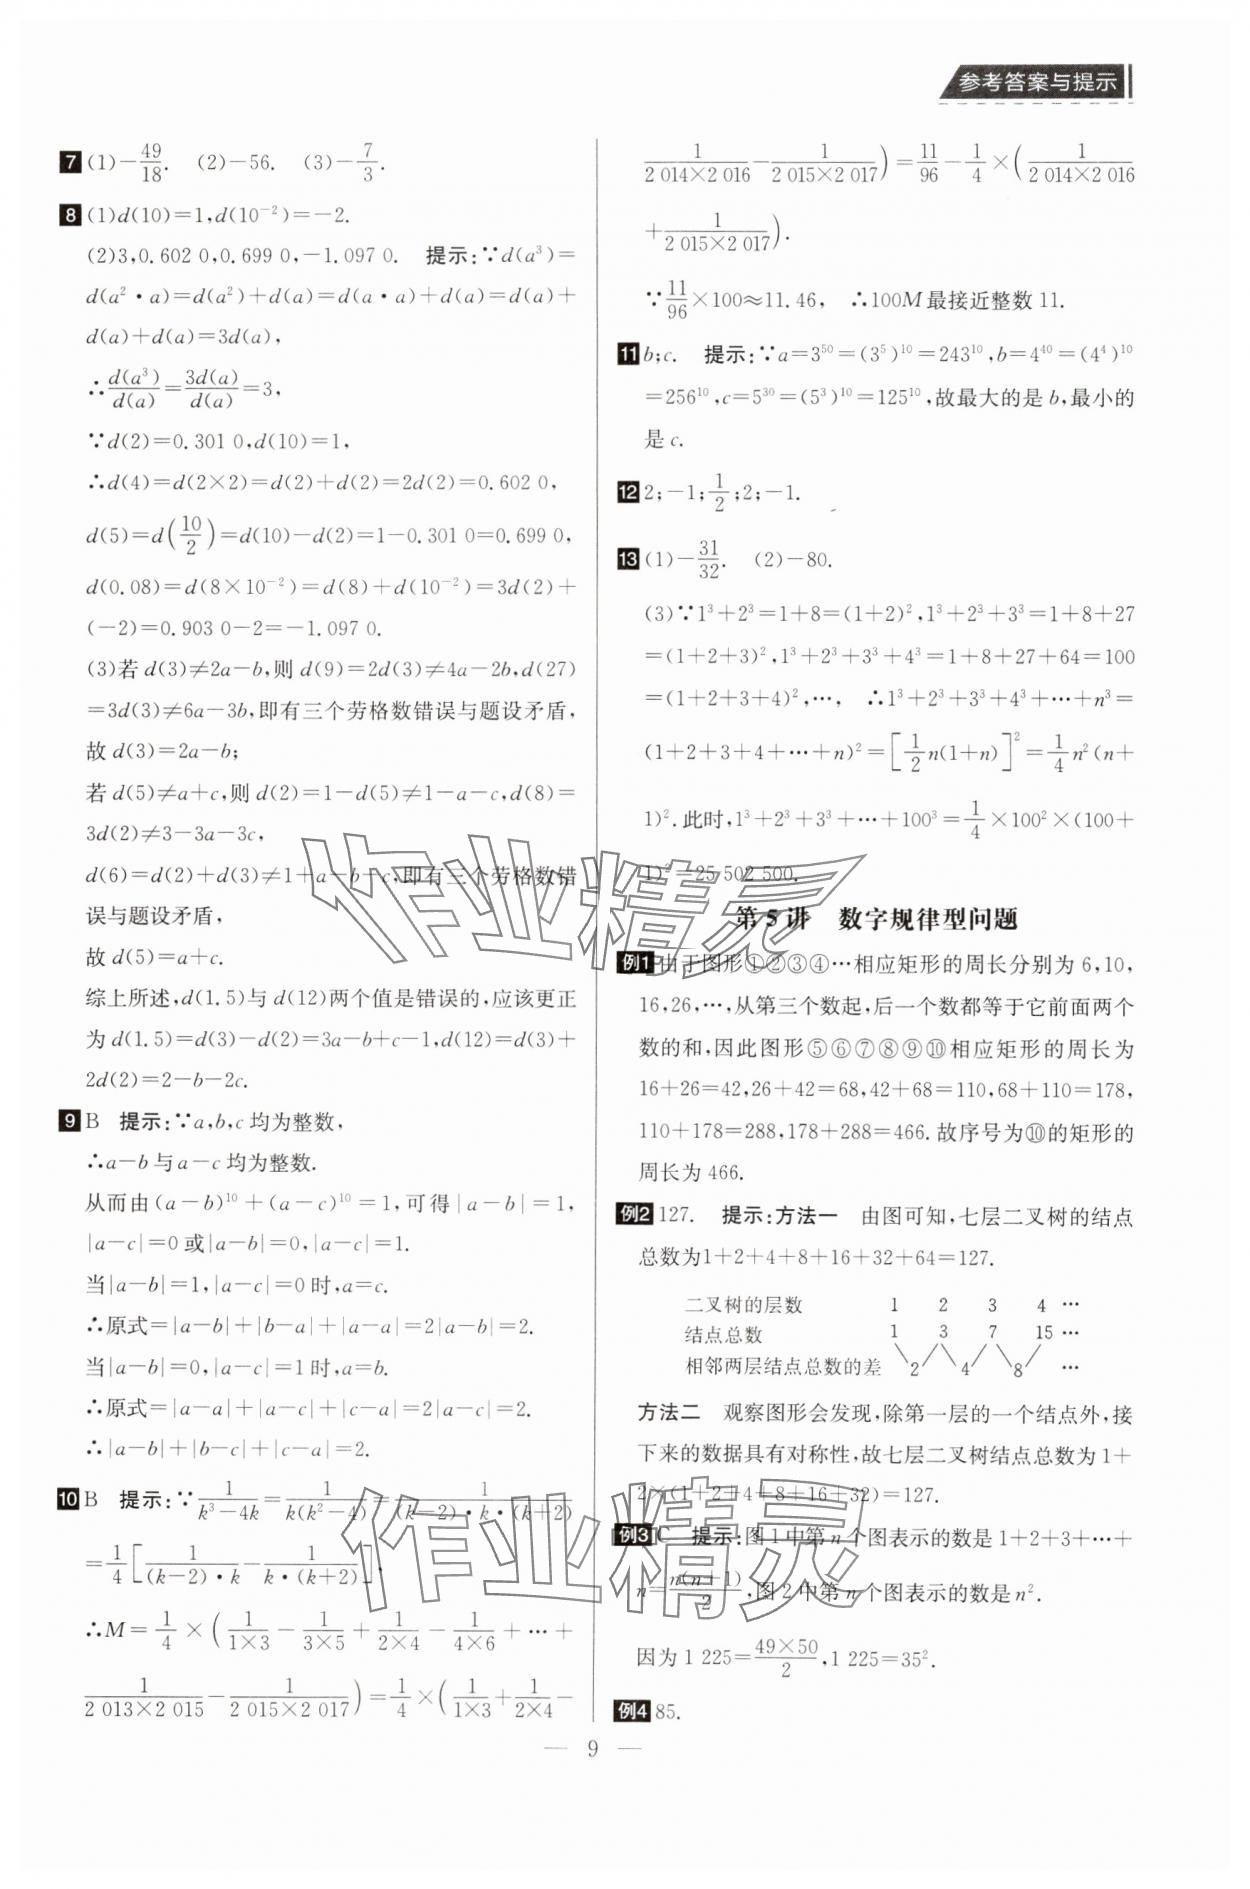 参考答案与提示
7 (1)−49/18. (2)−56. (3)−7/3.
8 (1)d(10)=1,d(10⁻²)=−2.
(2)3,0.602 0,0.699 0,−1.097 0. 提示:∵d(a³)=
d(a²·a)=d(a²)+d(a)=d(a·a)+d(a)=d(a)+
d(a)+d(a)=3d(a),
∴d(a³)/d(a)=3d(a)/d(a)=3,
∵d(2)=0.301 0,d(10)=1,
∴d(4)=d(2×2)=d(2)+d(2)=2d(2)=0.602 0,
d(5)=d(10/2)=d(10)−d(2)=1−0.301 0=0.699 0,
d(0.08)=d(8×10⁻²)=d(8)+d(10⁻²)=3d(2)+
(−2)=0.903 0−2=−1.097 0.
(3)若 d(3)≠2a−b,则 d(9)=2d(3)≠4a−2b,d(27)
=3d(3)≠6a−3b,即有三个劳格数错误与题设矛盾,
故 d(3)=2a−b;
若 d(5)≠a+c,则 d(2)=1−d(5)≠1−a−c,d(8)=
3d(2)≠3−3a−3c,
d(6)=d(2)+d(3)≠1+a−b−c,即有三个劳格数错
误与题设矛盾,
故 d(5)=a+c.
综上所述,d(1.5)与 d(12)两个值是错误的,应该更正
为 d(1.5)=d(3)−d(2)=3a−b+c−1,d(12)=d(3)+
2d(2)=2−b−2c.
9 B 提示:∵a,b,c 均为整数,
∴a−b 与 a−c 均为整数.
从而由(a−b)¹⁰+(a−c)¹⁰=1,可得|a−b|=1,
|a−c|=0 或|a−b|=0,|a−c|=1.
当|a−b|=1,|a−c|=0 时,a=c.
∴原式=|a−b|+|b−a|+|a−a|=2|a−b|=2.
当|a−b|=0,|a−c|=1 时,a=b.
∴原式=|a−a|+|a−c|+|c−a|=2|a−c|=2.
∴|a−b|+|b−c|+|c−a|=2.
10 B 提示:∵1/(k³−4k)=1/(k(k²−4))=1/((k−2)·k·(k+2))
=1/4[1/((k−2)·k)−1/(k·(k+2))],
∴M=1/4×(1/(1×3)−1/(3×5)+1/(2×4)−1/(4×6)+⋯+
1/(2 013×2 015)−1/(2 015×2 017))=1/4×(1/(1×3)+1/(2×4)−
1/(2 014×2 016)−1/(2 015×2 017))=11/96−1/4×(1/(2 014×2 016)
+1/(2 015×2 017)).
∵11/96×100≈11.46, ∴100M 最接近整数 11.
11 b;c. 提示:∵a=3⁵⁰=(3⁵)¹⁰=243¹⁰,b=4⁴⁰=(4⁴)¹⁰
=256¹⁰,c=5³⁰=(5³)¹⁰=125¹⁰,故最大的是 b,最小的
是 c.
12 2;−1;1/2;2;−1.
13 (1)−31/32. (2)−80.
(3)∵1³+2³=1+8=(1+2)²,1³+2³+3³=1+8+27
=(1+2+3)²,1³+2³+3³+4³=1+8+27+64=100
=(1+2+3+4)²,⋯, ∴1³+2³+3³+4³+⋯+n³=
(1+2+3+4+⋯+n)²=[1/2n(1+n)]²=1/4n²(n+
1)².此时,1³+2³+3³+⋯+100³=1/4×100²×(100+
1)²=25 502 500.
第 5 讲 数字规律型问题
例1 由于图形①②③④⋯相应矩形的周长分别为 6,10,
16,26,⋯,从第三个数起,后一个数都等于它前面两个
数的和,因此图形⑤⑥⑦⑧⑨⑩相应矩形的周长为
16+26=42,26+42=68,42+68=110,68+110=178,
110+178=288,178+288=466.故序号为⑩的矩形的
周长为 466.
例2 127. 提示:方法一 由图可知,七层二叉树的结点
总数为1+2+4+8+16+32+64=127.
二叉树的层数 1 2 3 4 ⋯
结点总数 1 3 7 15 ⋯
相邻两层结点总数的差 2 4 8 ⋯
方法二 观察图形会发现,除第一层的一个结点外,接
下来的数据具有对称性,故七层二叉树结点总数为 1+
2×(1+2+4+8+16+32)=127.
例3 C 提示:图 1 中第 n 个图表示的数是 1+2+3+⋯+
n=n(n+1)/2,图 2 中第 n 个图表示的数是 n².
因为 1 225=49×50/2,1 225=35².
例4 85.
— 9 —
作业精灵
作业精灵